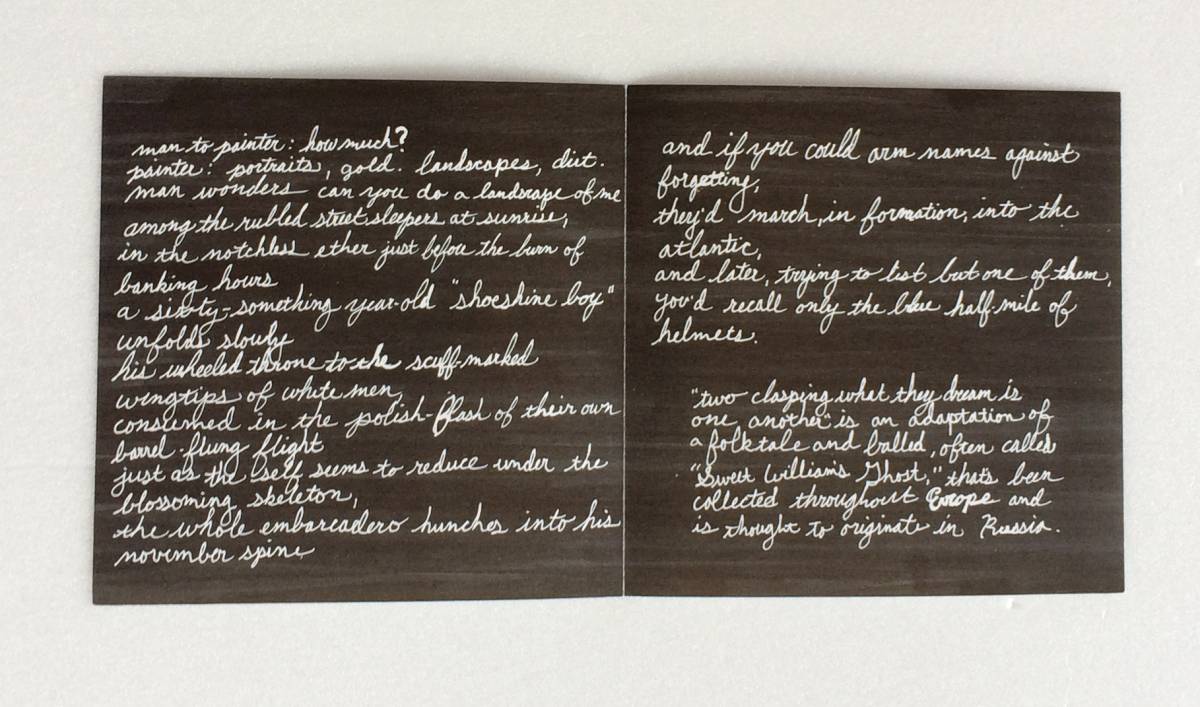 man to painter: how much?
painter: portraits, gold. landscapes, dirt.
man wonders can you do a landscape of me
among the rubled street sleepers at sunrise,
in the notchless ether just before the burn of
banking hours
a sixty-something year-old "shoeshine boy"
unfolds slowly
his wheeled throne to the scuff-marked
wingtips of white men
consumed in the polish-flash of their own
barrel-flung flight
just as the self seems to reduce under the
blossoming skeleton,
the whole embarcadero hunches into his
november spine
and if you could arm names against
forgetting,
they'd march, in formation, into the
atlantic,
and later, trying to list but one of them,
you'd recall only the blue half-mile of
helmets.
"two clasping what they dream is
one another" is an adaptation of
a folktale and balled, often called
"Sweet William's Ghost," thats been
collected throughout Europe and
is thought to originate in Russia.